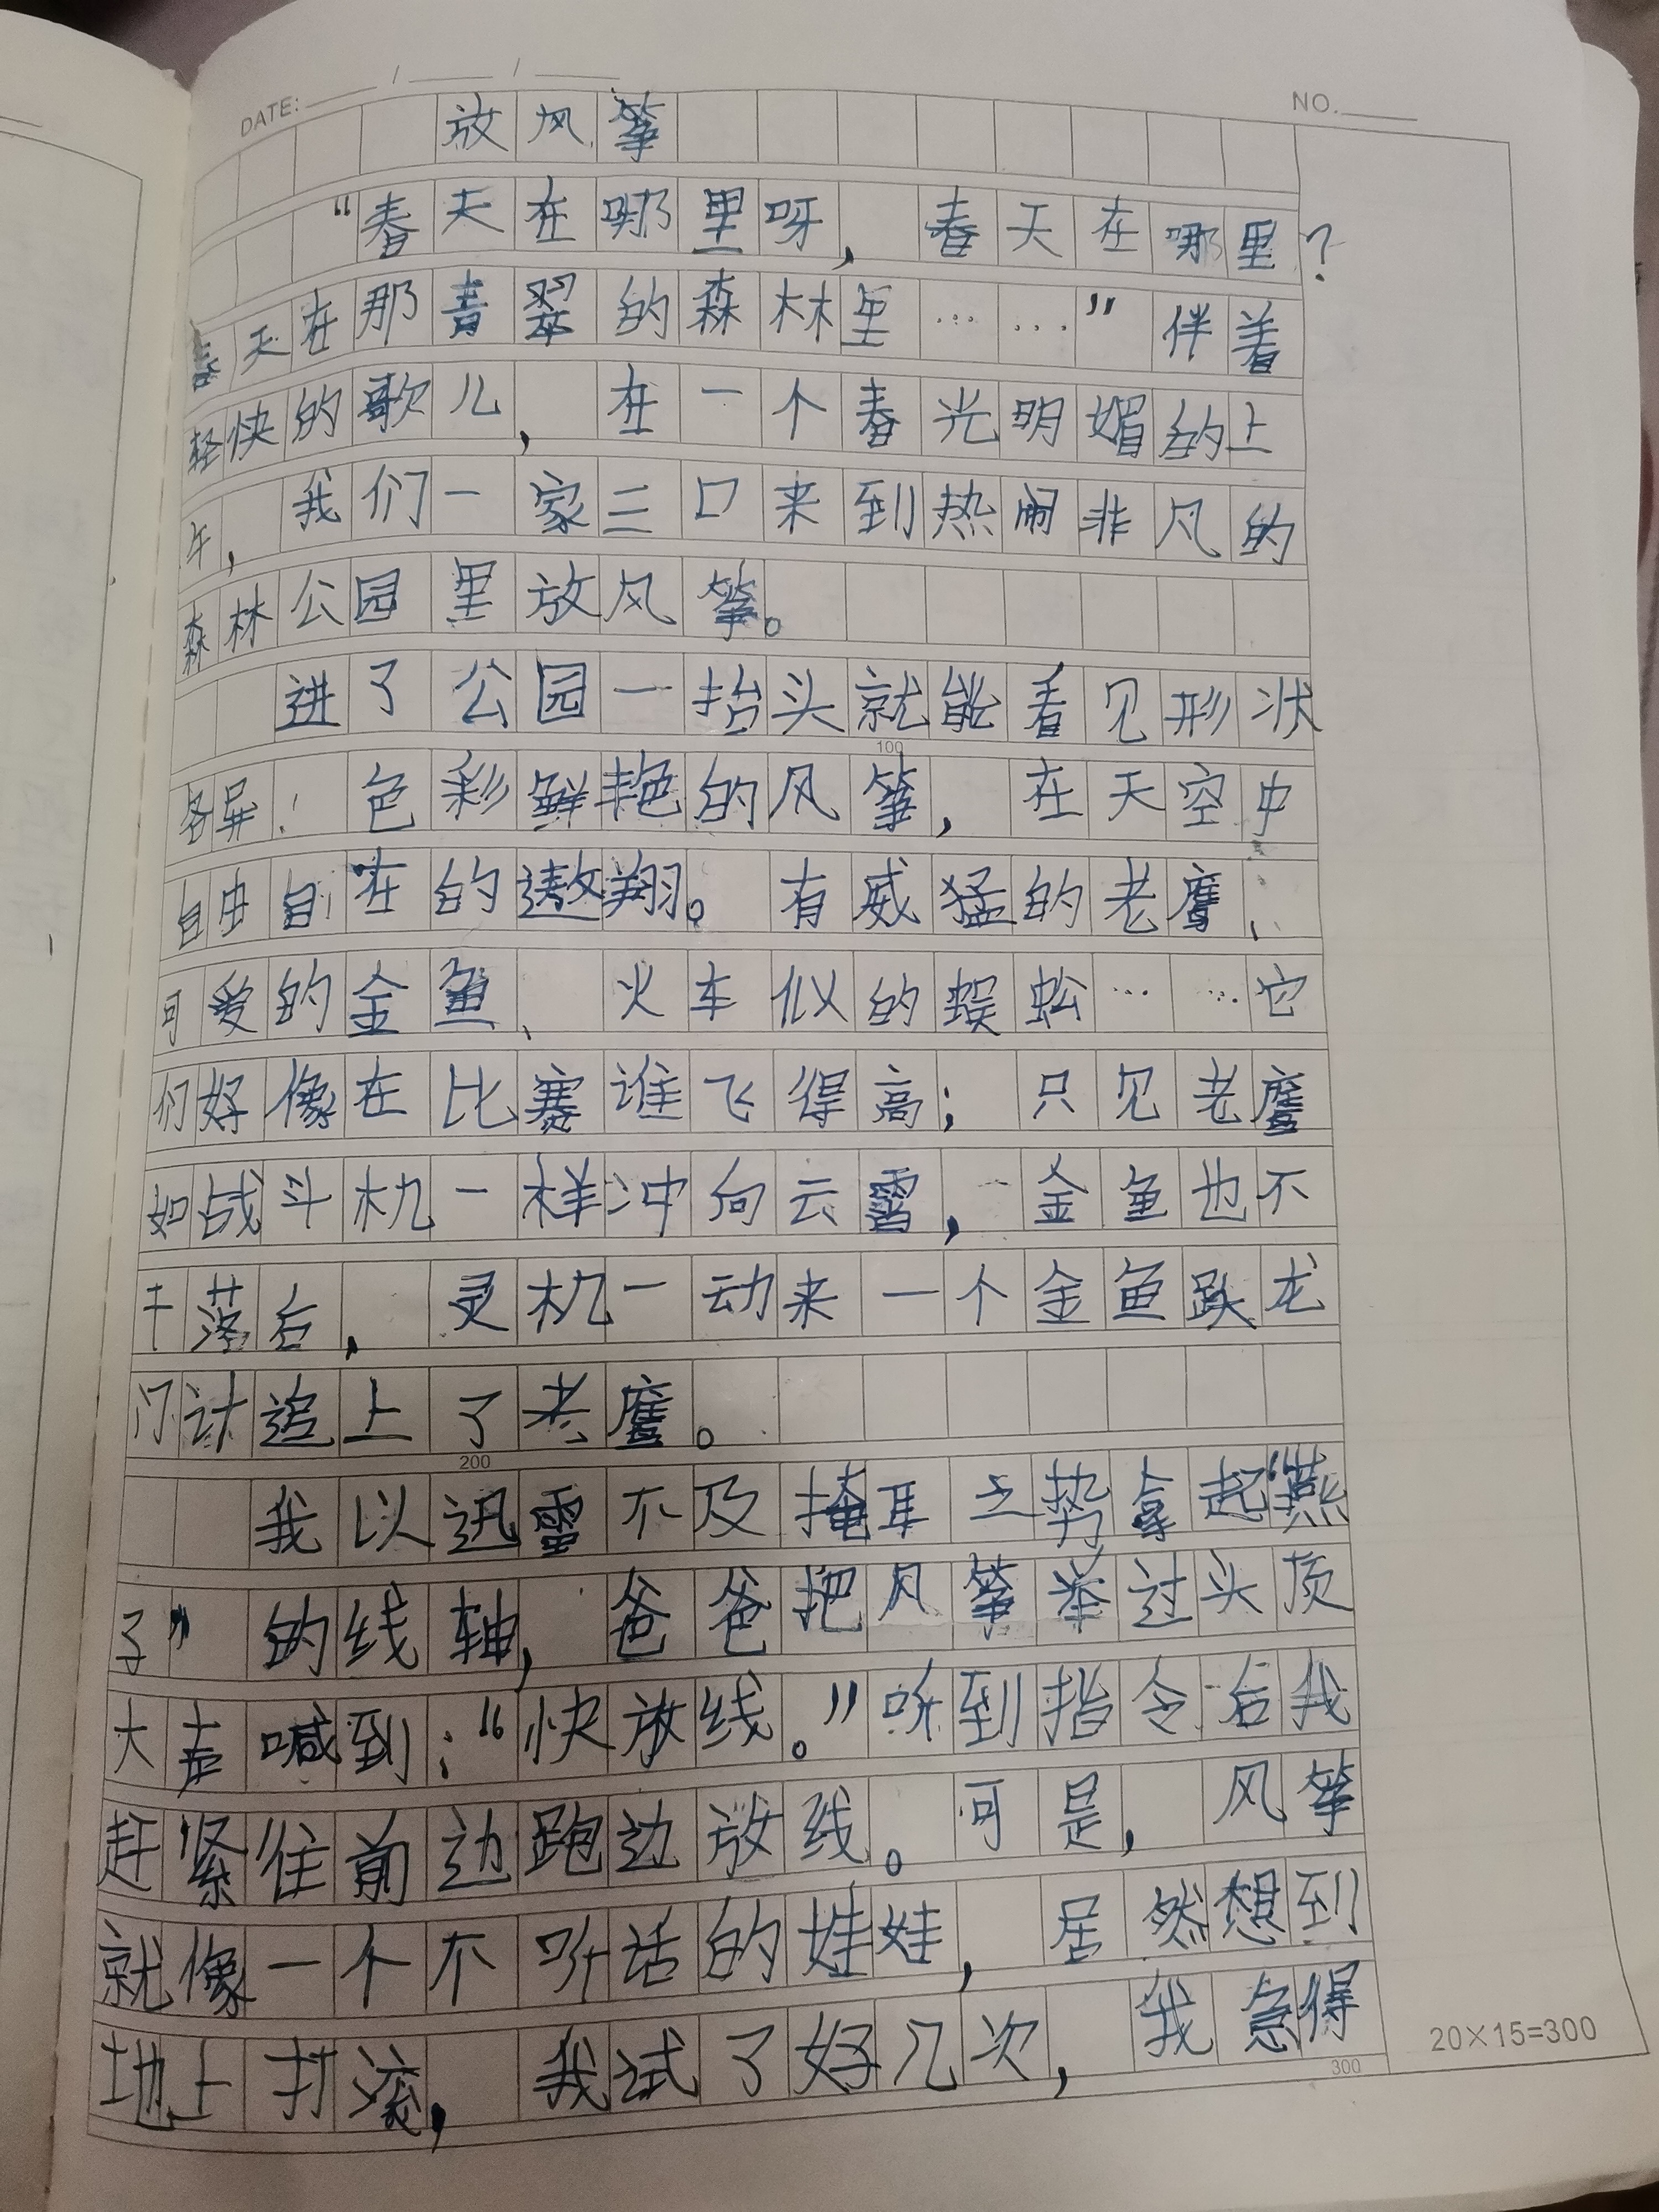 DATE: / /
NO.
放风筝
“春天在哪里呀，春天在哪里？
春天在那青翠的森林里……”伴着
轻快的歌儿，在一个春光明媚的上
午，我们一家三口来到热闹非凡的
森林公园里放风筝。
进了公园一抬头就能看见形状
各异、色彩鲜艳的风筝，在天空中
自由自在的遨翔。有威猛的老鹰、
可爱的金鱼、火车似的蜈蚣……它
们好像在比赛谁飞得高；只见老鹰
如战斗机一样冲向云霄，金鱼也不
干落后，灵机一动来一个金鱼跃龙
门计追上了老鹰。
200
我以迅雷不及掩耳之势拿起“燕
子”的线轴，爸爸把风筝举过头顶
大声喊到：“快放线。”听到指令后我
赶紧往前边跑边放线。可是，风筝
就像一个不听话的娃娃，居然想到
地上打滚，我试了好几次，我急得
100
300
20×15=300